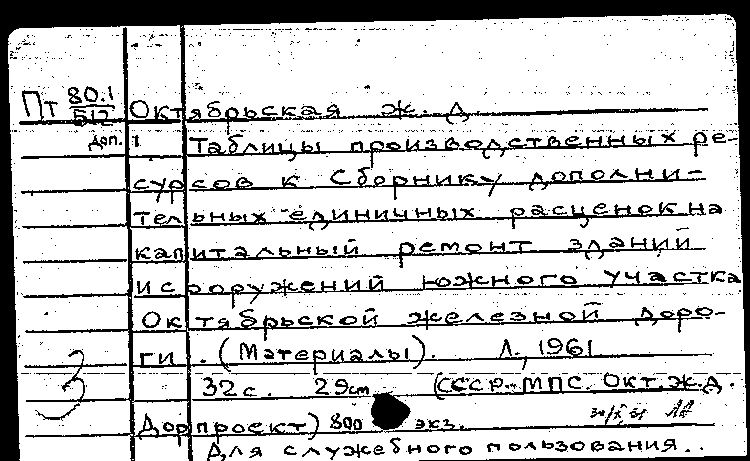 Пт 80.1/512 Октябрьская ж. д.
доп. 1 Таблицы производственных ре-
сурсов к Сборнику дополни-
тельных единичных расценок на
капитальный ремонт зданий
и сооружений южного участка
Октябрьской железной доро-
ги. (Материалы). Л., 1961
32 с. 29 cm (СССР. МПС. Окт. ж.д.
3
Дорпроект) 800 экз.
Для служебного пользования.